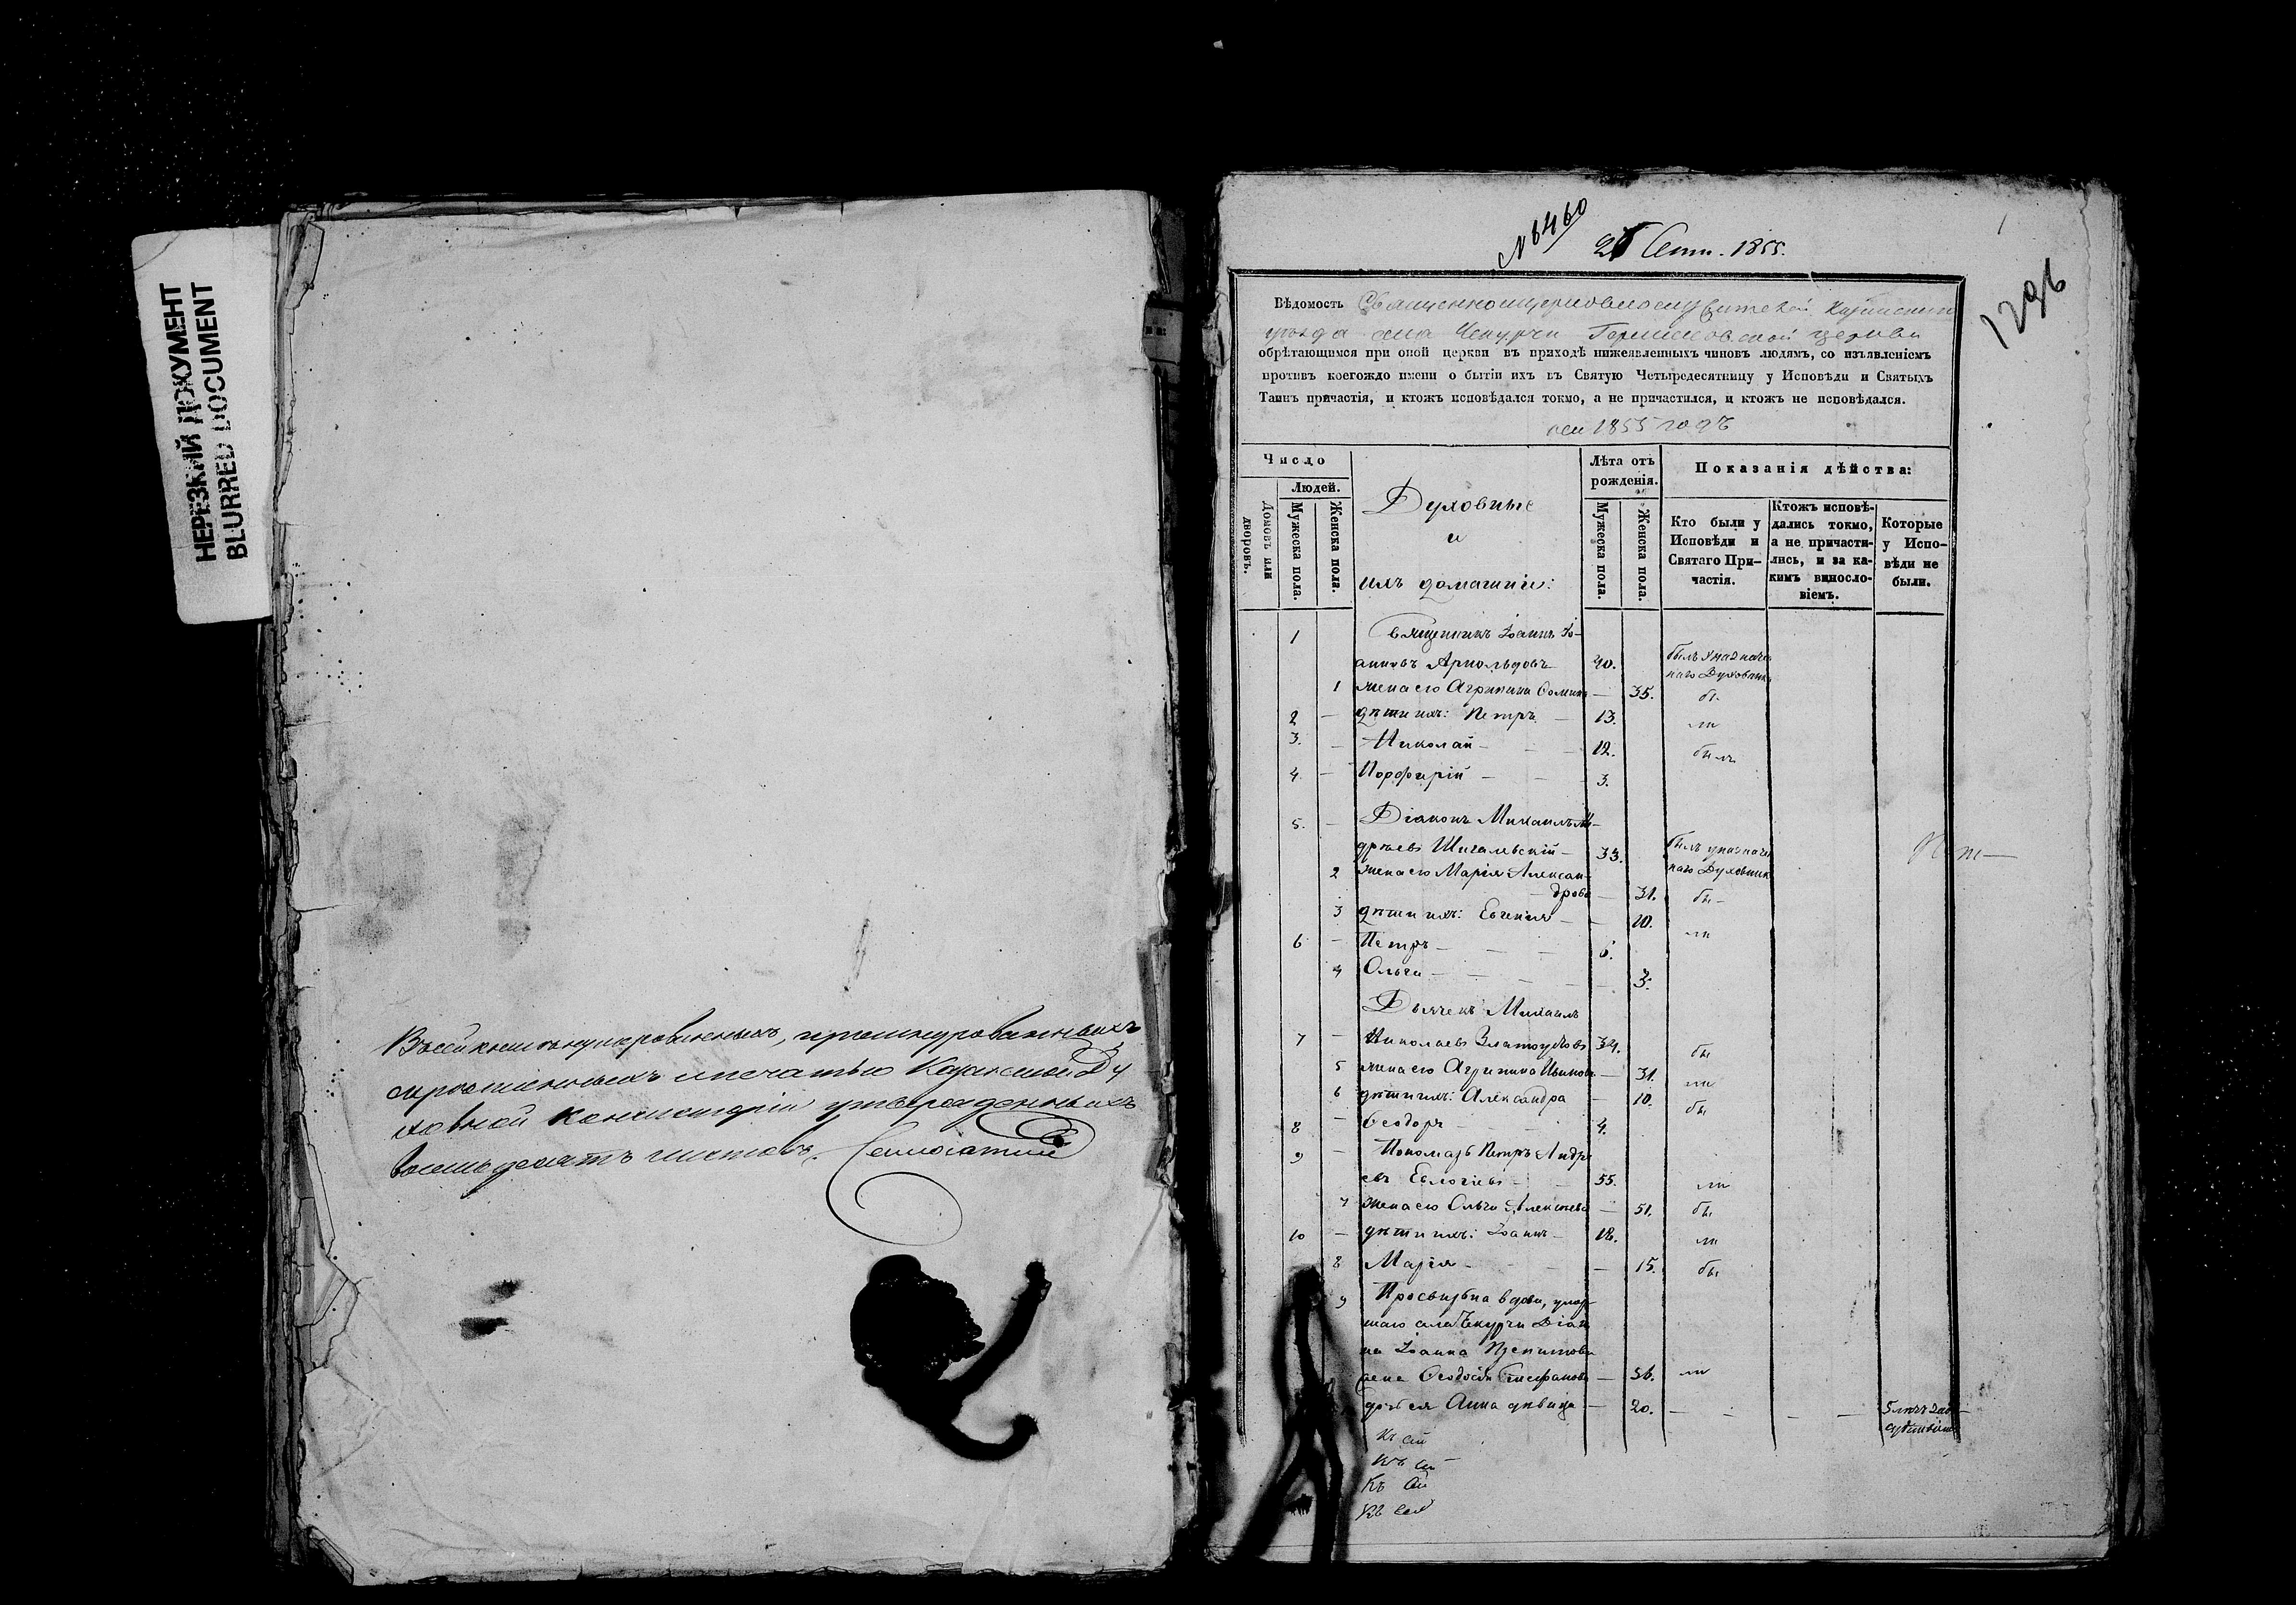 НЕРЕЗКИЙ ДОКУМЕНТ
BLURRED DOCUMENT
Въ сей книгѣ нумерованныхъ, прошнурованныхъ
и печатью Казанской Ду
ховной Консисторіи утвержденныхъ
восемьдесятъ листовъ.
№ 6460
Сент. 1855.
1
1296
Вѣдомость Священноцерковнослужителей Казанскаго
уѣзда села Чепурчи церкви
обрѣтающимся при оной церкви въ приходѣ нижеявленныхъ чиновъ людямъ, со изъявленіемъ
противъ коегождо имени о бытіи ихъ въ Святую Четыредесятницу у Исповѣди и Святыхъ
Таинъ причастія, и ктожъ исповѣдался токмо, а не причастился, и ктожъ не исповѣдался.
1855 годъ
Число
Людей.
Домовъ или дворовъ.
Мужеска пола.
Женска пола.
Духовные
и
ихъ домашніе:
Лѣта отъ рожденія.
Мужеска пола.
Женска пола.
Показанія дѣйства:
Кто были у Исповѣди и Святаго При-
частія.
Ктожъ исповѣ-
дались токмо, а не причасти-
лись, и за ка-
кимъ винносло-
віемъ.
Которые у Испо-
вѣди не были.
1 Священникъ Іоаннъ Іо-
анновъ Арнольдовъ 40. былъ у назначен
наго Духовника
1 жена его Агрипина — 35. бы
2 — дѣти ихъ: Петръ — 13. ли
3. — Николай — 12. былъ
4 — Порфирій — 3.
5. — Діаконъ Михаилъ Ан-
дреевъ Шигалевскій — 33. былъ у назначен
наго Духовник
2 жена его Марія Алексан-
дрова — 31. бы
3 дѣти ихъ: Евгенія — 10. ли
6 — Петръ — 6.
4 Ольга — 3.
Дьячекъ Михаилъ
7 — Николаевъ Златоустовъ 34. бы
5 жена его Агрипина Иванова — 31. ли
6 дѣти ихъ: Александра — 10. бы
8 — Ѳеодоръ — 4.
9 — Пономарь Петръ Андре
евъ Евлогіевъ — 55. ли
7 жена его Ольга Алексѣева — 51. бы
10 — дѣти ихъ: Іоаннъ — 18. ли
8 Марія — 15. бы
9 Просвирня вдова, умер
шаго села Чепурчи Діако
на Іоанна
жена Ѳеодосія Стефанова — 56. ли
дочь ея Анна дѣвица — 20. — — — —
Къ сей
Къ сей
Къ сей
Къ сей